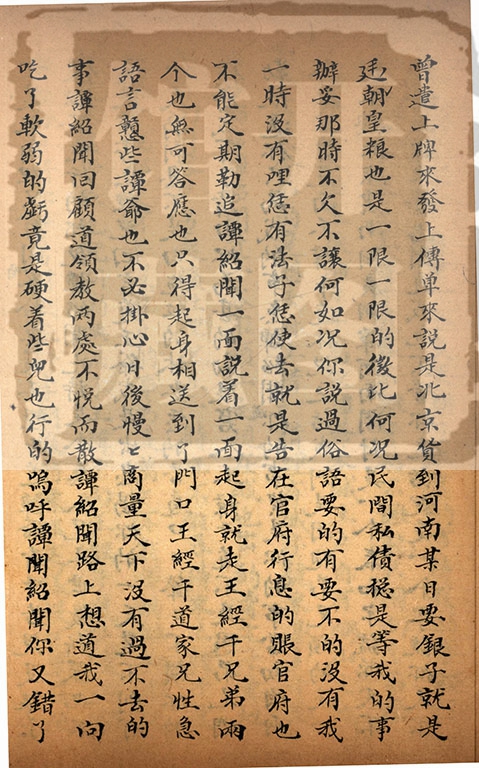 曾遣上牌來發上傳單來說是北京貨到河南某日要銀子就是
廷朝皇粮也是一限一限的徵比何况民間私債總是等我的事
辦妥那時不欠不讓何如况你說過俗語要的有要不的没有我
一時没有哩恁有法子恁使去就是告在官府行息的賬官府也
不能定期勒追譚紹聞一面説着一面起身就走王經千兄弟兩
个也無可答應也只得起身相送到了門口王經千道家兄性急
語言戆些譚爺也不必掛心日後慢〻商量天下没有過不去的
事譚紹聞回顧道領教两處不悦而散譚紹聞路上想道我一向
吃了軟弱的虧竟是硬着些兒也行的嗚呼譚聞紹聞你又錯了